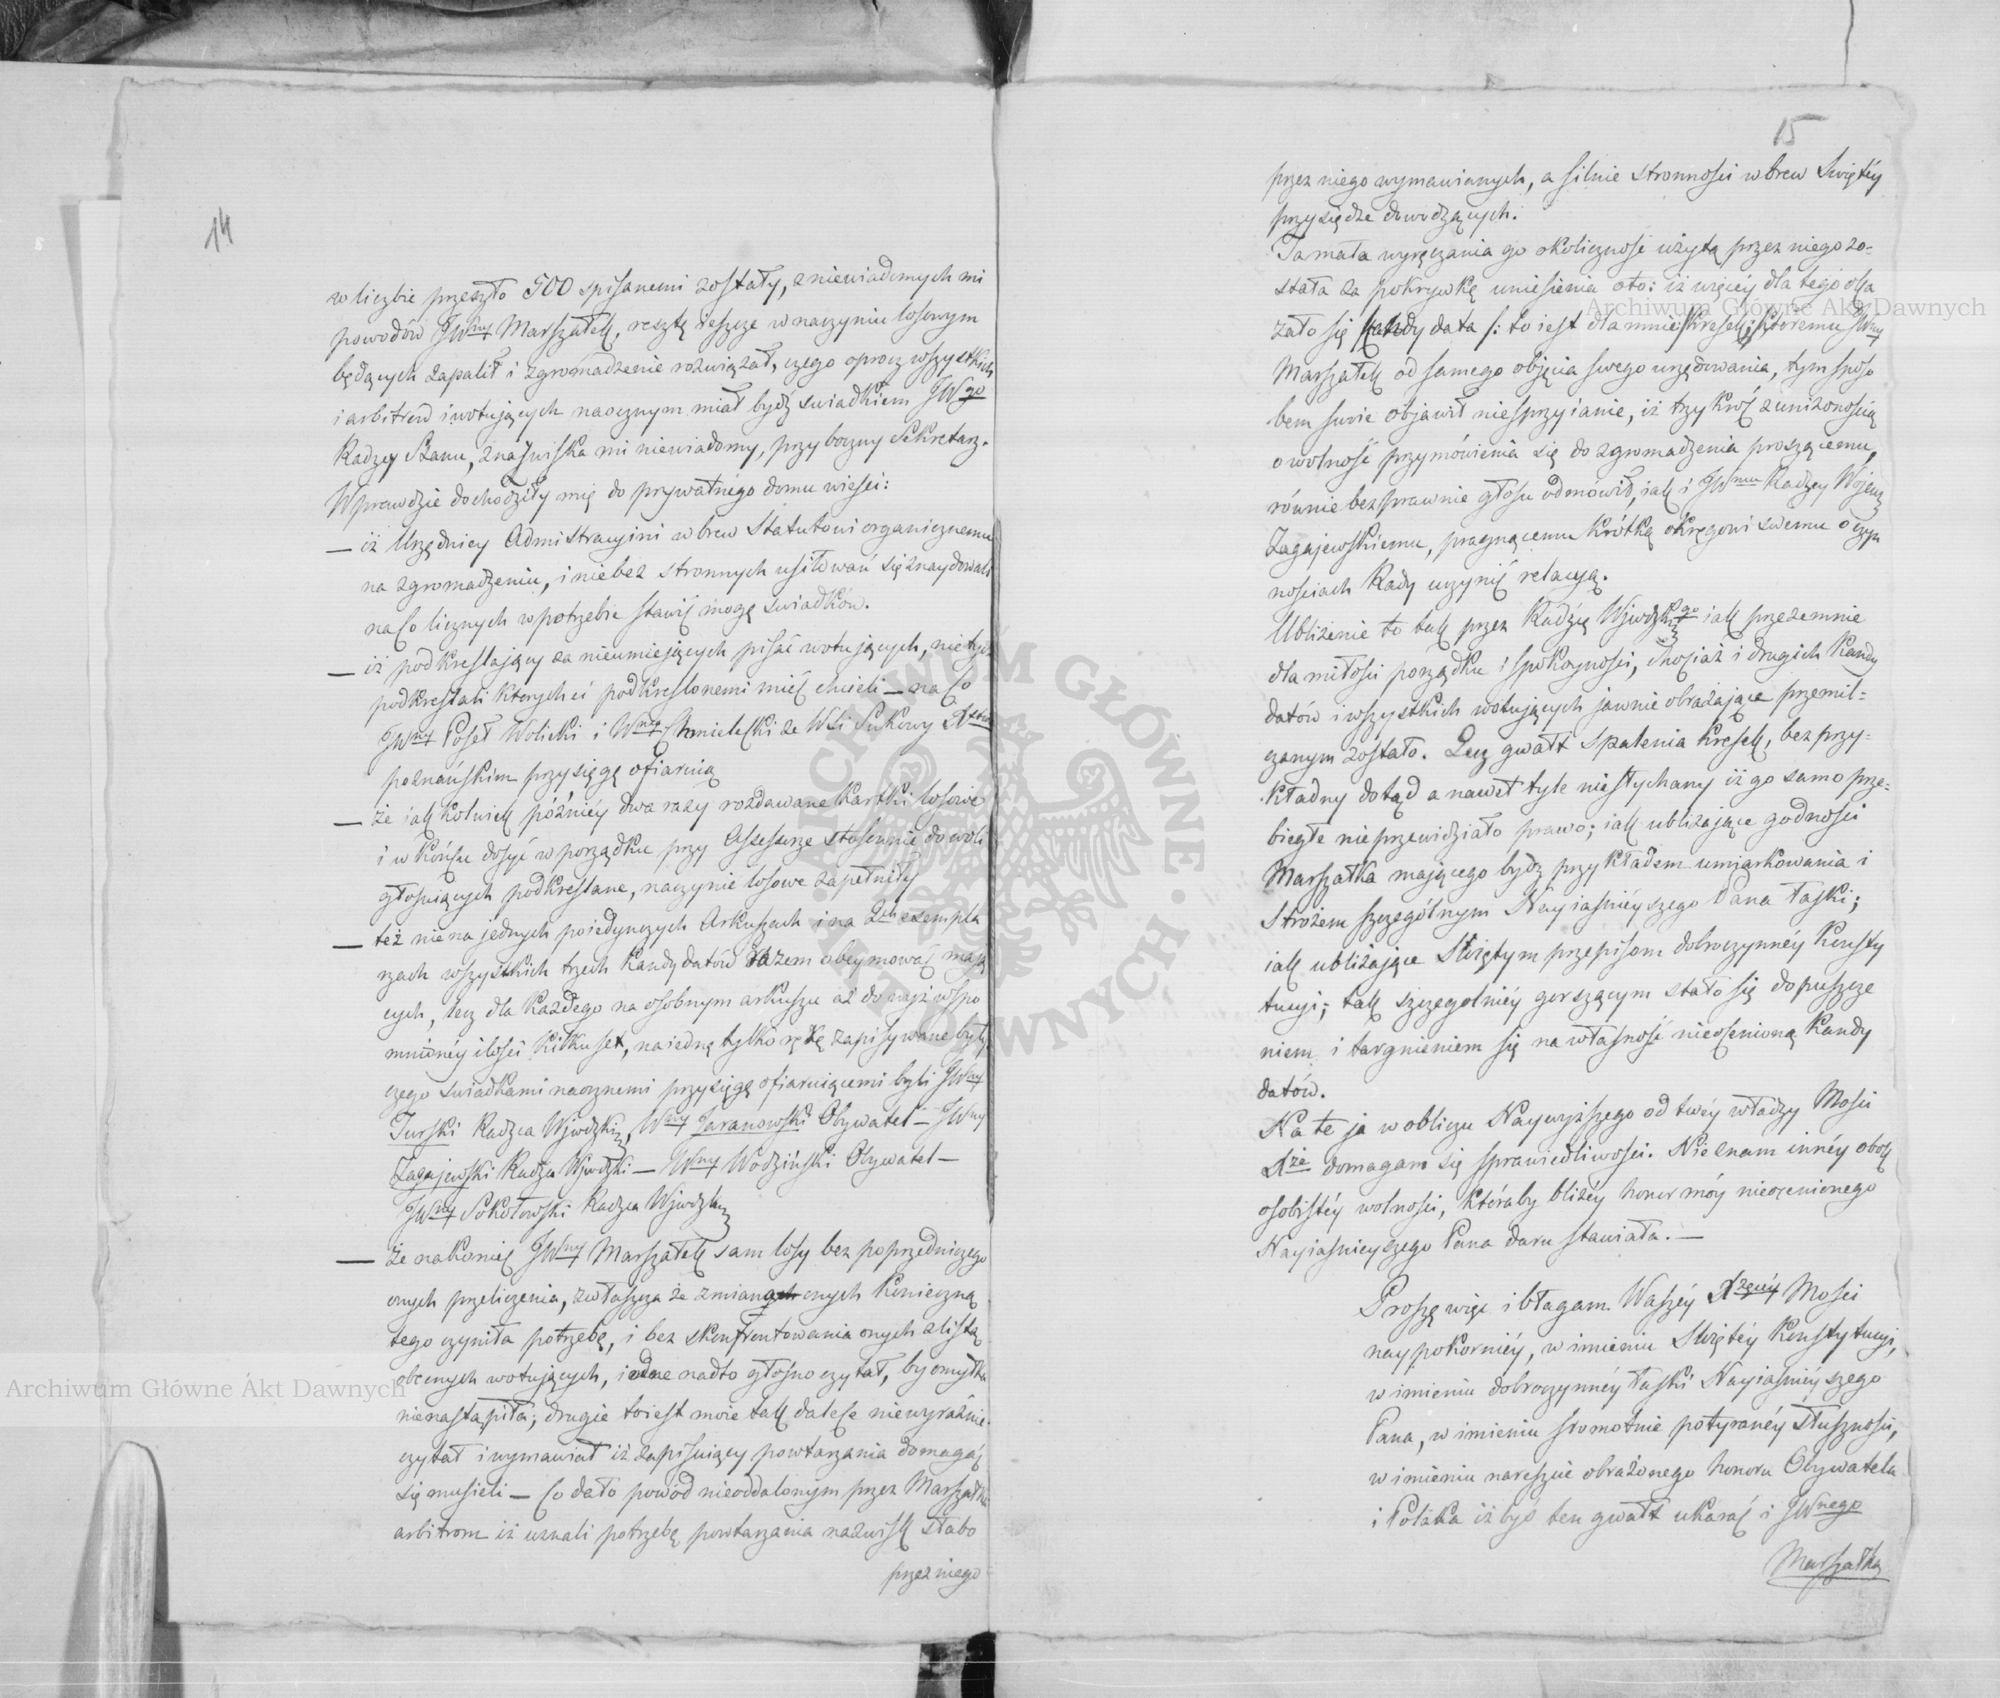 14
w liczbie przeszło 500 spisanemi zostały, z niewiadomych mi
powodów JWny Marszałek, resztę ieszcze w naczyniu losowym
będących zapalił i zgromadzenie rozwiązał, czego oprocz wszystkich
i arbitrów i wotujących naocznym miał bydź swiadkiem JWgo
Radzcy Stanu, z nazwiska mi niewiadomy, przyboczny Sekretarz.
Wprawdzie dochodziły mię do prywatnégo domu wiesci:
— iż Urzędnicy Admistracyini wbrew Statutowi organicznemu
na zgromadzeniu, i nie bez stronnych usiłowań się znaydowali
na co licznych w potrzebie stawić mogę swiadków.
— iż podkreslaiący za nieumiejących pisać wotujących, nie tych
podkreslali ktorych ci podkreslonemi mieć chcieli — na co
JWny Poseł Wolicki i Wny Chmielecki ze Wsi Sukowy
poznańskim przysięgę ofiarują
— że iak kolwiek później dwa razy rozdawane kartki losowe
i w końcu dosyć w porządku przy Assessorze stosownie do woli
głosuiących podkreslane, naczynie losowe zapełniły
— też nie na jednych poiedynczych Arkuszach i na 2ch exempla
rzach wszystkich trzech Kandydatów razem obeymować mają
cych, lecz dla każdego na osobnym arkuszu aż do wyż wspo
mnionéy ilości kilkuset, na iedną tylko rękę zapisywane były
czego swiadkami naocznemi przysięgę ofiaruiącemi byli JWny
Turski Radzca Wjwdzki, Wny Jaranowski Obywatel — JWny
Zagajewski Radzca Wjwdzki — Wny Wodziński Obywatel —
JWny Sokołowski Radzca Wjwdzki
— że nakoniec JWny Marszałek sam losy bez poprzedniczego
onych przeliczenia, zwłaszcza że zmiana onych konieczną
tego czyniła potrzebę, i bez skonfrontowania onych z listą
obecnych wotujących, iedne nadto głośno czytał, by omyłka
nie nastąpiła; drugie to iest moie tak dalece niewyraźnie
czytał i wymawiał iż zapisuiący powtarzania domagać
się musieli — Co dało powód nieoddalonym przez Marszałka
arbitrom iż uznali potrzebę powtarzania nazwisk słabo
przez niego
15
przez niego wymawianych, a silnie stronności wbrew Swiętéy
przysiędze dowodzących.
Ta mała wyręczania go okoliczność użytą przez niego zo-
stała za pokrywkę uniesienia oto: iż więcéy dla tego oka
zało się kandydata /: to iest dla mnie kresek :/ ktoremu JWny
Marszałek od samego objęcia swego urzędowania, tym sposo
bem swoie objawił niesprzyianie, iż trzykroć z uniżonością
o wolność przymówienia się do zgromadzenia proszącemu,
równie bezprawnie głosu odmówił, iak i JWmu Radzcy Wojew
Zagajewskiemu, pragnącemu krótką okręgowi swemu o czyn
nościach Rady uczynić relacyą.
Ubliżenie to tak przez Radzcę Wjwdzkgo iak przezemnie
dla miłości porządku i spokoyności, chociaż i drugich Kandy
datów i wszystkich wotujących jawnie obrażające przemil=
czanym zostało. Lecz gwałt spalenia kresek, bez przy=
kładny dotąd a nawet tyle niesłychany iż go samo prze=
biegłe nieprzewidziało prawo; iak ubliżające godności
Marszałka mającego bydź przykładem umiarkowania i
Strożem szczególnym Nayiaśniéyszego Pana Łaski;
iak ubliżające Swiętym przepisom dobroczynnéy Konsty
tucyi; tak szczególniéy gorszącym stało się dopuszcze
niem i targnieniem się na własność nieocenioną Kandy
datów.
Na te ja w obliczu Naywyższego od twéy władzy Mości
Xże domagam się sprawiedliwości. Nie znam innéy obok
osobistéy wolności, któraby bliżéy honor móy nieocenionego
Nayiaśnieyszego Pana daru stawiała. —
Proszę więc i błagam Waszéy Xżęcéy Mości
naypokorniéy, w imieniu Swiętéy Konstytucyi,
w imieniu dobroczynnéy łaski Nayiaśniéyszego
Pana, w imieniu sromotnie potyranéy Słuszności,
w imieniu nareszcie obrażonego honoru Obywatela
i Polaka iżbyś ten gwałt ukarać i JWnego
Marszałka